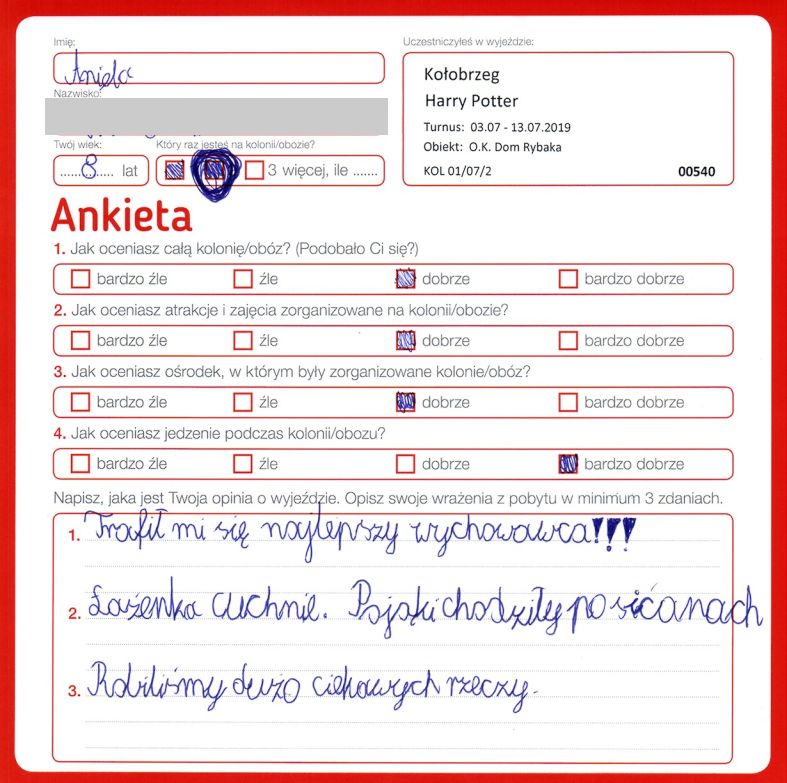 Imię:
Uczestniczyłeś w wyjeździe:
Aniela
Kołobrzeg
Harry Potter
Nazwisko:
Turnus: 03.07 - 13.07.2019
Obiekt: O.K. Dom Rybaka
KOL 01/07/2 00540
Twój wiek:
Który raz jesteś na kolonii/obozie?
......8..... lat
3 więcej, ile .......
Ankieta
1. Jak oceniasz całą kolonię/obóz? (Podobało Ci się?)
bardzo źle źle dobrze bardzo dobrze
2. Jak oceniasz atrakcje i zajęcia zorganizowane na kolonii/obozie?
bardzo źle źle dobrze bardzo dobrze
3. Jak oceniasz ośrodek, w którym były zorganizowane kolonie/obóz?
bardzo źle źle dobrze bardzo dobrze
4. Jak oceniasz jedzenie podczas kolonii/obozu?
bardzo źle źle dobrze bardzo dobrze
Napisz, jaka jest Twoja opinia o wyjeździe. Opisz swoje wrażenia z pobytu w minimum 3 zdaniach.
1. Trafił mi się najlepszy wychowawca!!!
2. Łazenka cuchnie. Pająki chodziły po sićanach
3. Robiliśmy dużo ciekawych rzeczy.